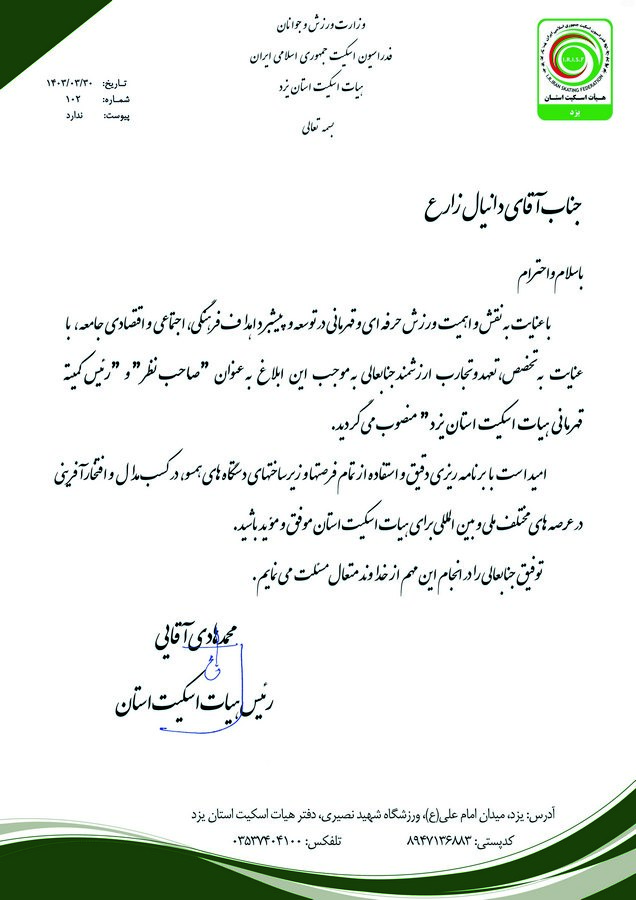 وزارت ورزش و جوانان
فدراسیون اسکیت جمهوری اسلامی ایران
هیات اسکیت استان یزد
بسمه تعالی
تاریخ: ۱۴۰۳/۰۳/۳۰
شماره: ۱۰۲
پیوست: ندارد
I.R.I.S.F
I.R.IRAN SKATING FEDERATION
هیأت اسکیت استان
یزد
جناب آقای دانیال زارع
باسلام و احترام
با عنایت به نقش و اهمیت ورزش حرفه ای و قهرمانی در توسعه و پیشبرد اهداف فرهنگی، اجتماعی و اقتصادی جامعه، با
عنایت به تخصص، تعهد و تجارب ارزشمند جنابعالی به موجب این ابلاغ به عنوان "صاحب نظر" و "رئیس کمیته
قهرمانی هیات اسکیت استان یزد" منصوب می گردید.
امید است با برنامه ریزی دقیق و استفاده از تمام فرصتها و زیرساختهای دستگاه های همسو، در کسب مدال و افتخارآفرینی
در عرصه های مختلف ملی و بین المللی برای هیات اسکیت استان موفق و مؤید باشید.
توفیق جنابعالی را در انجام این مهم از خداوند متعال مسئلت می نمایم.
محمدهادی آقایی
رئیس هیات اسکیت استان
آدرس: یزد، میدان امام علی(ع)، ورزشگاه شهید نصیری، دفتر هیات اسکیت استان یزد
کدپستی: ۸۹۴۷۱۳۶۸۸۳ تلفکس: ۰۳۵۳۷۴۰۴۱۰۰